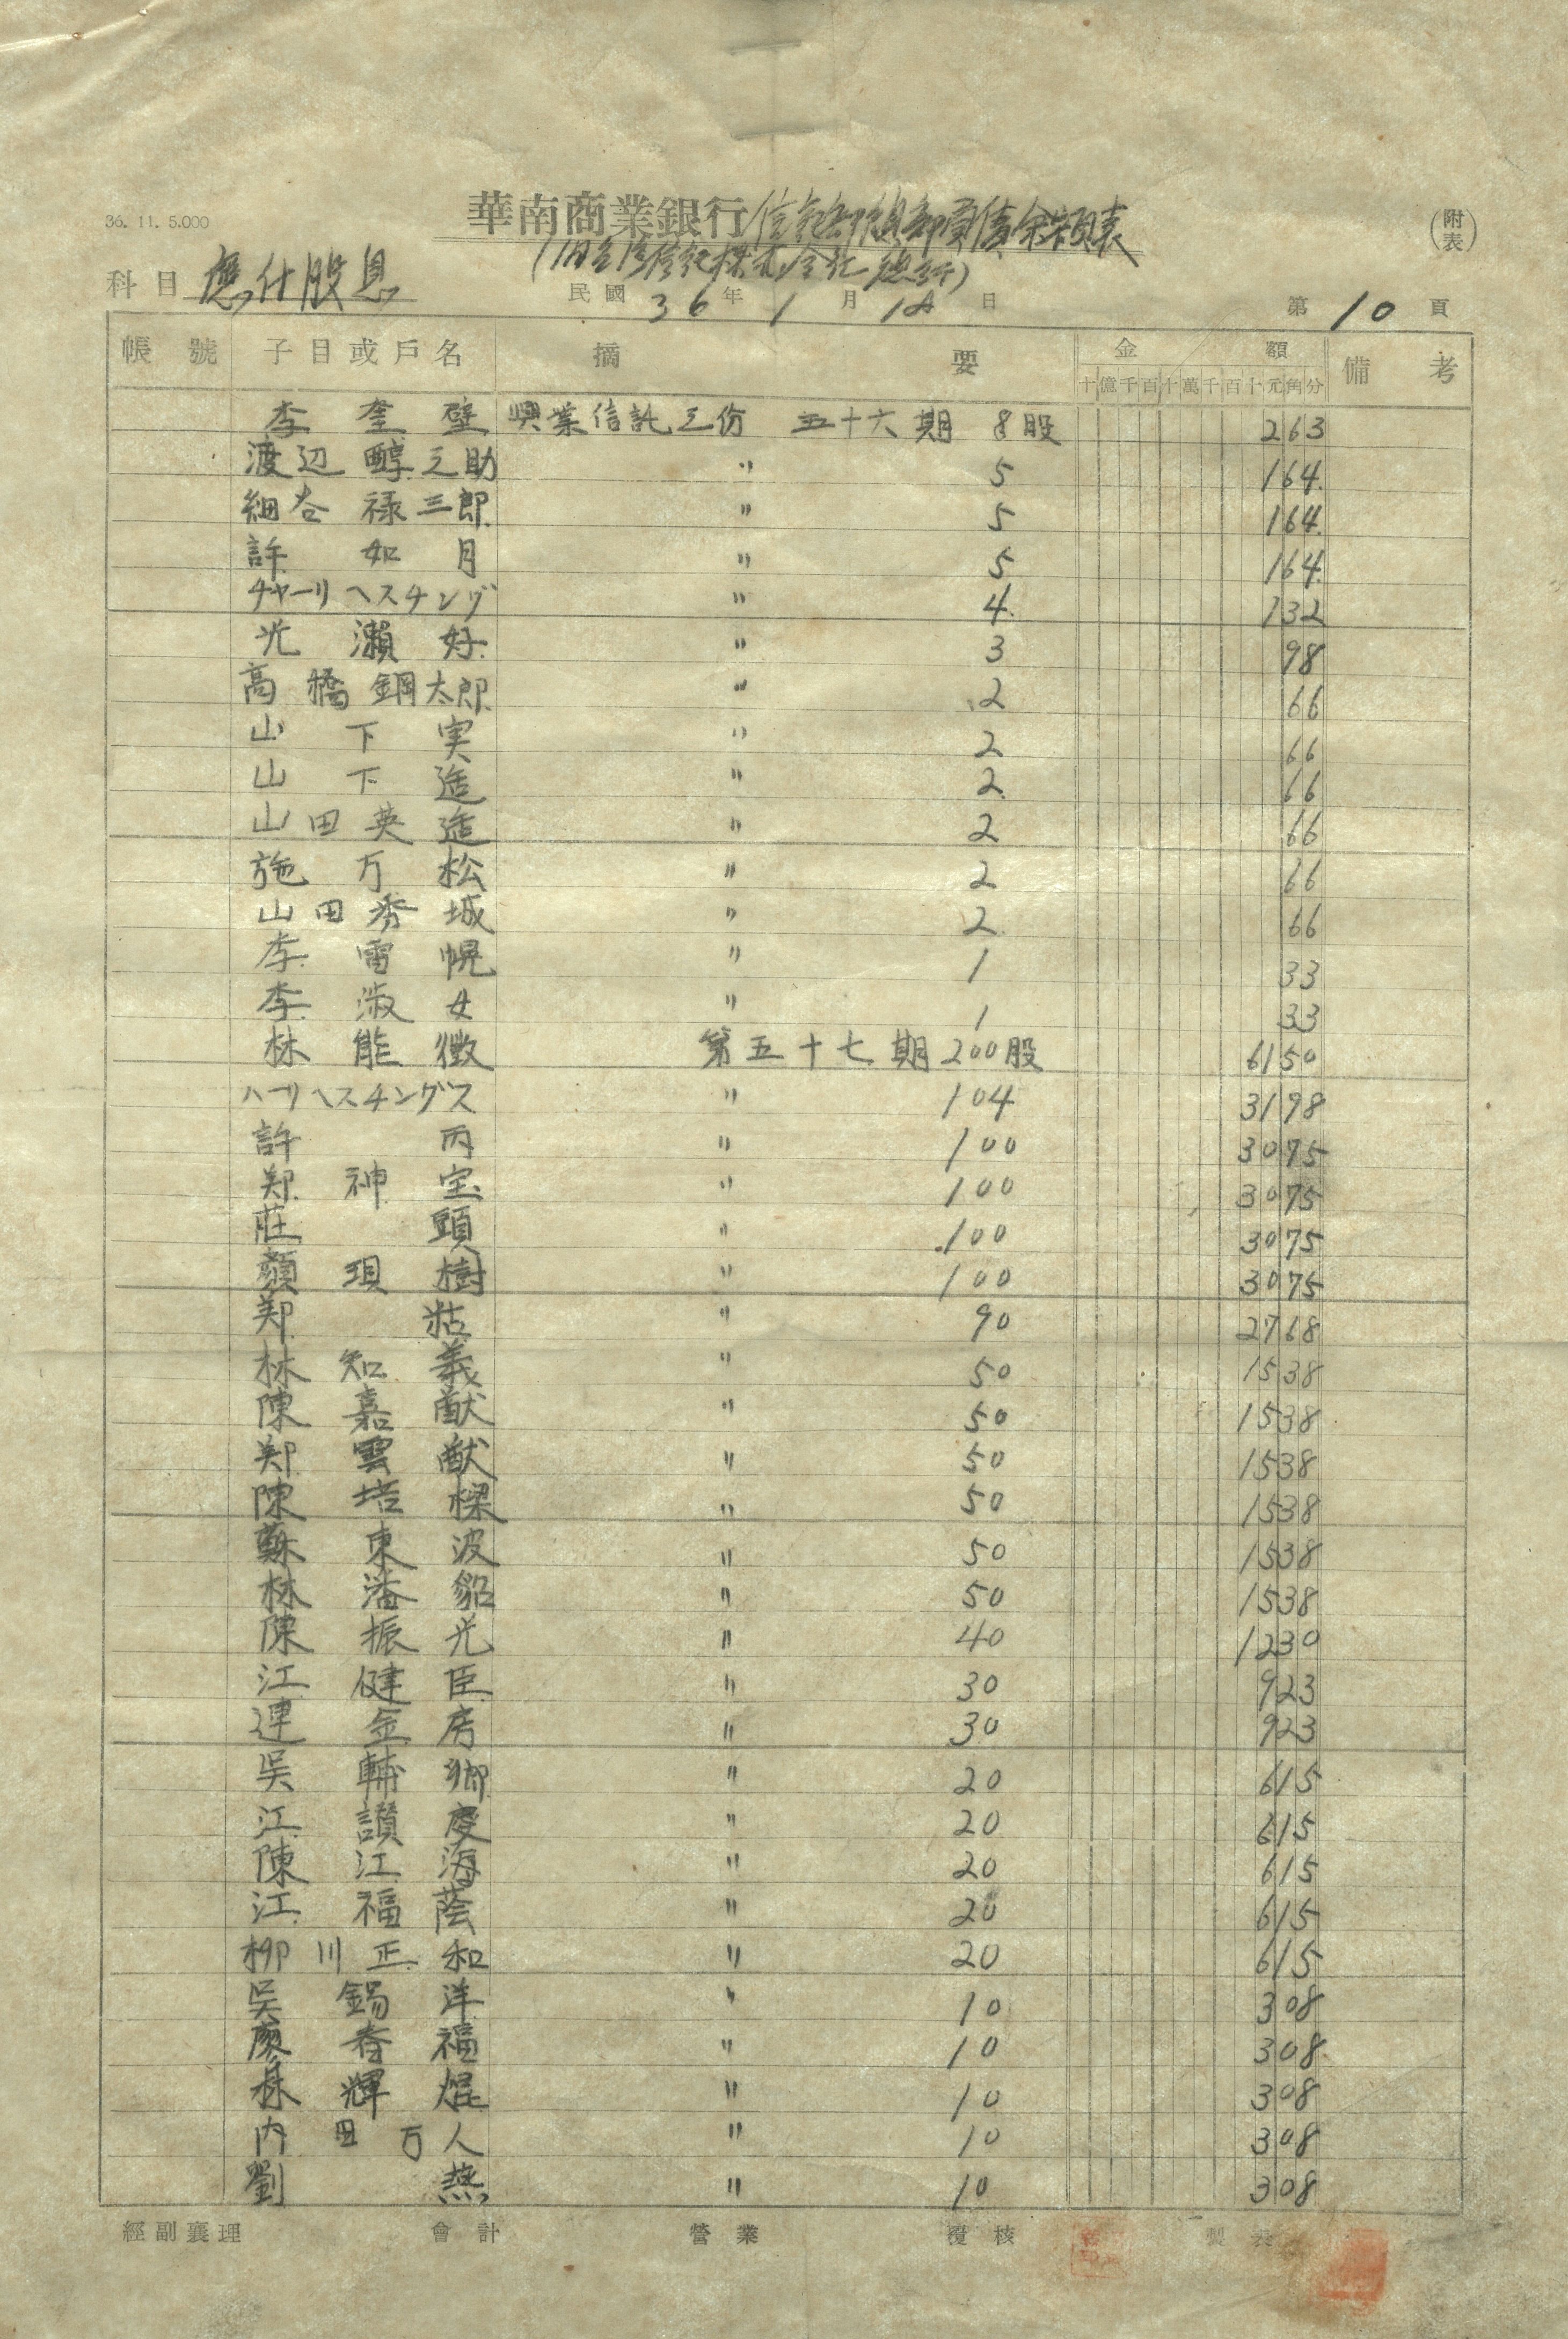 36. 11. 5.000
華南商業銀行信託部總部負債余額表
(附表)
(旧台湾信託株式会社總行)
科目 應付股息
民國 36 年 1 月 18 日
第 10 頁
帳號 子目或戶名 摘要 金額 備考
十億千百十萬千百十元角分
李奎壁 興業信託之份 五十六期 8股 263
渡辺醇之助 〃 5 164.
細谷禄三郎 〃 5 164.
許如月 〃 5 164.
チャーリヘスチング 〃 4. 132
光瀨好 〃 3 98
高橋鋼太郎 〃 2 66
山下実 〃 2 66
山下造 〃 2. 66
山田英造 〃 2 66
施万松 〃 2 66
山田秀城 〃 2 66
李雷幌 〃 1 33
李淑女 〃 1 33
林熊徴 第五十七期 200股 6150
ハーリヘスチングス 〃 104 3198
許丙 〃 100 3075
郑神宝 〃 100 3075
莊頭 〃 100 3075
顏現樹 〃 100 3075
郑粘 〃 90 2768
林知義 〃 50 1538
陳嘉猷 〃 50 1538
郑雲猷 〃 50 1538
陳培樑 〃 50 1538
蘇東波 〃 50 1538
林潘貂 〃 50 1538
陳振光 〃 40 1230
江健臣 〃 30 923
連金房 〃 30 923
吳輔卿 〃 20 615
江讃慶 〃 20 615
陳江海 〃 20 615
江福蔭 〃 20 615
柳川正和 〃 20 615
吳錫洋 〃 10 308
廖春福 〃 10 308
林輝焜 〃 10 308
内田万人 〃 10 308
劉燕 〃 10 308
經副襄理 會計 營業 覆核 製表